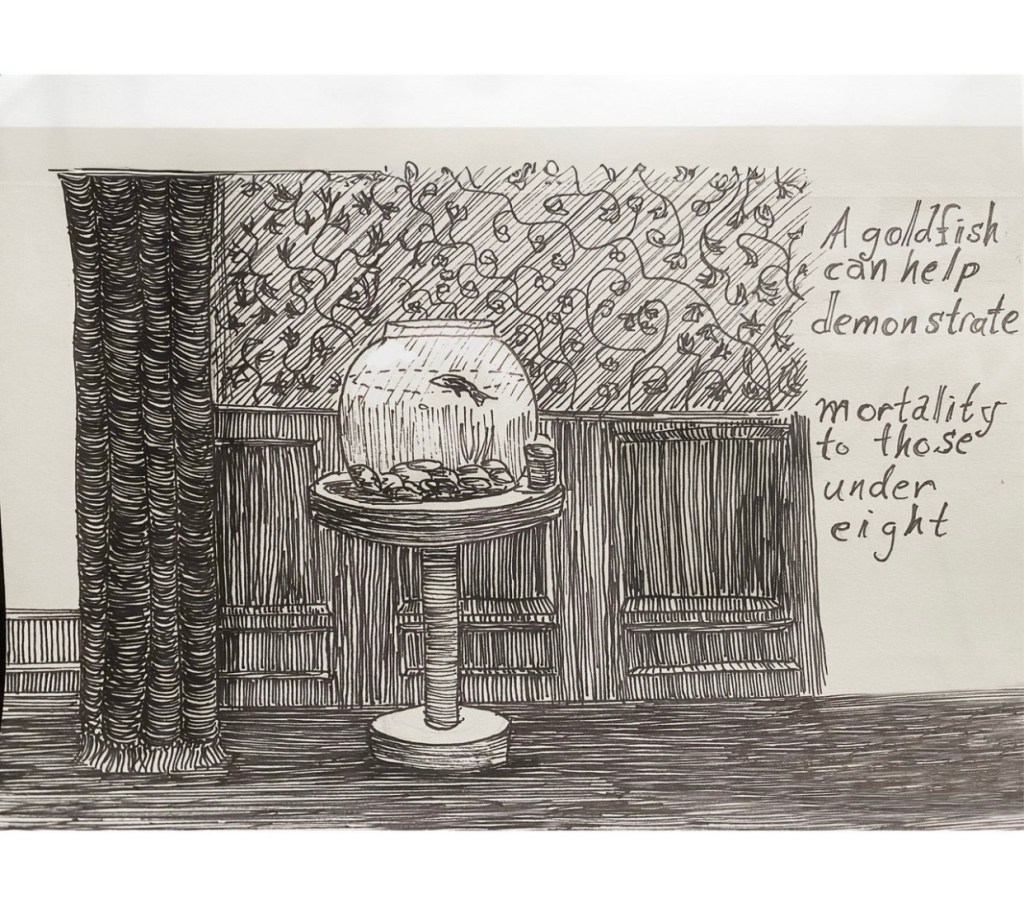 A goldfish
can help
demonstrate
mortality
to those
under
eight